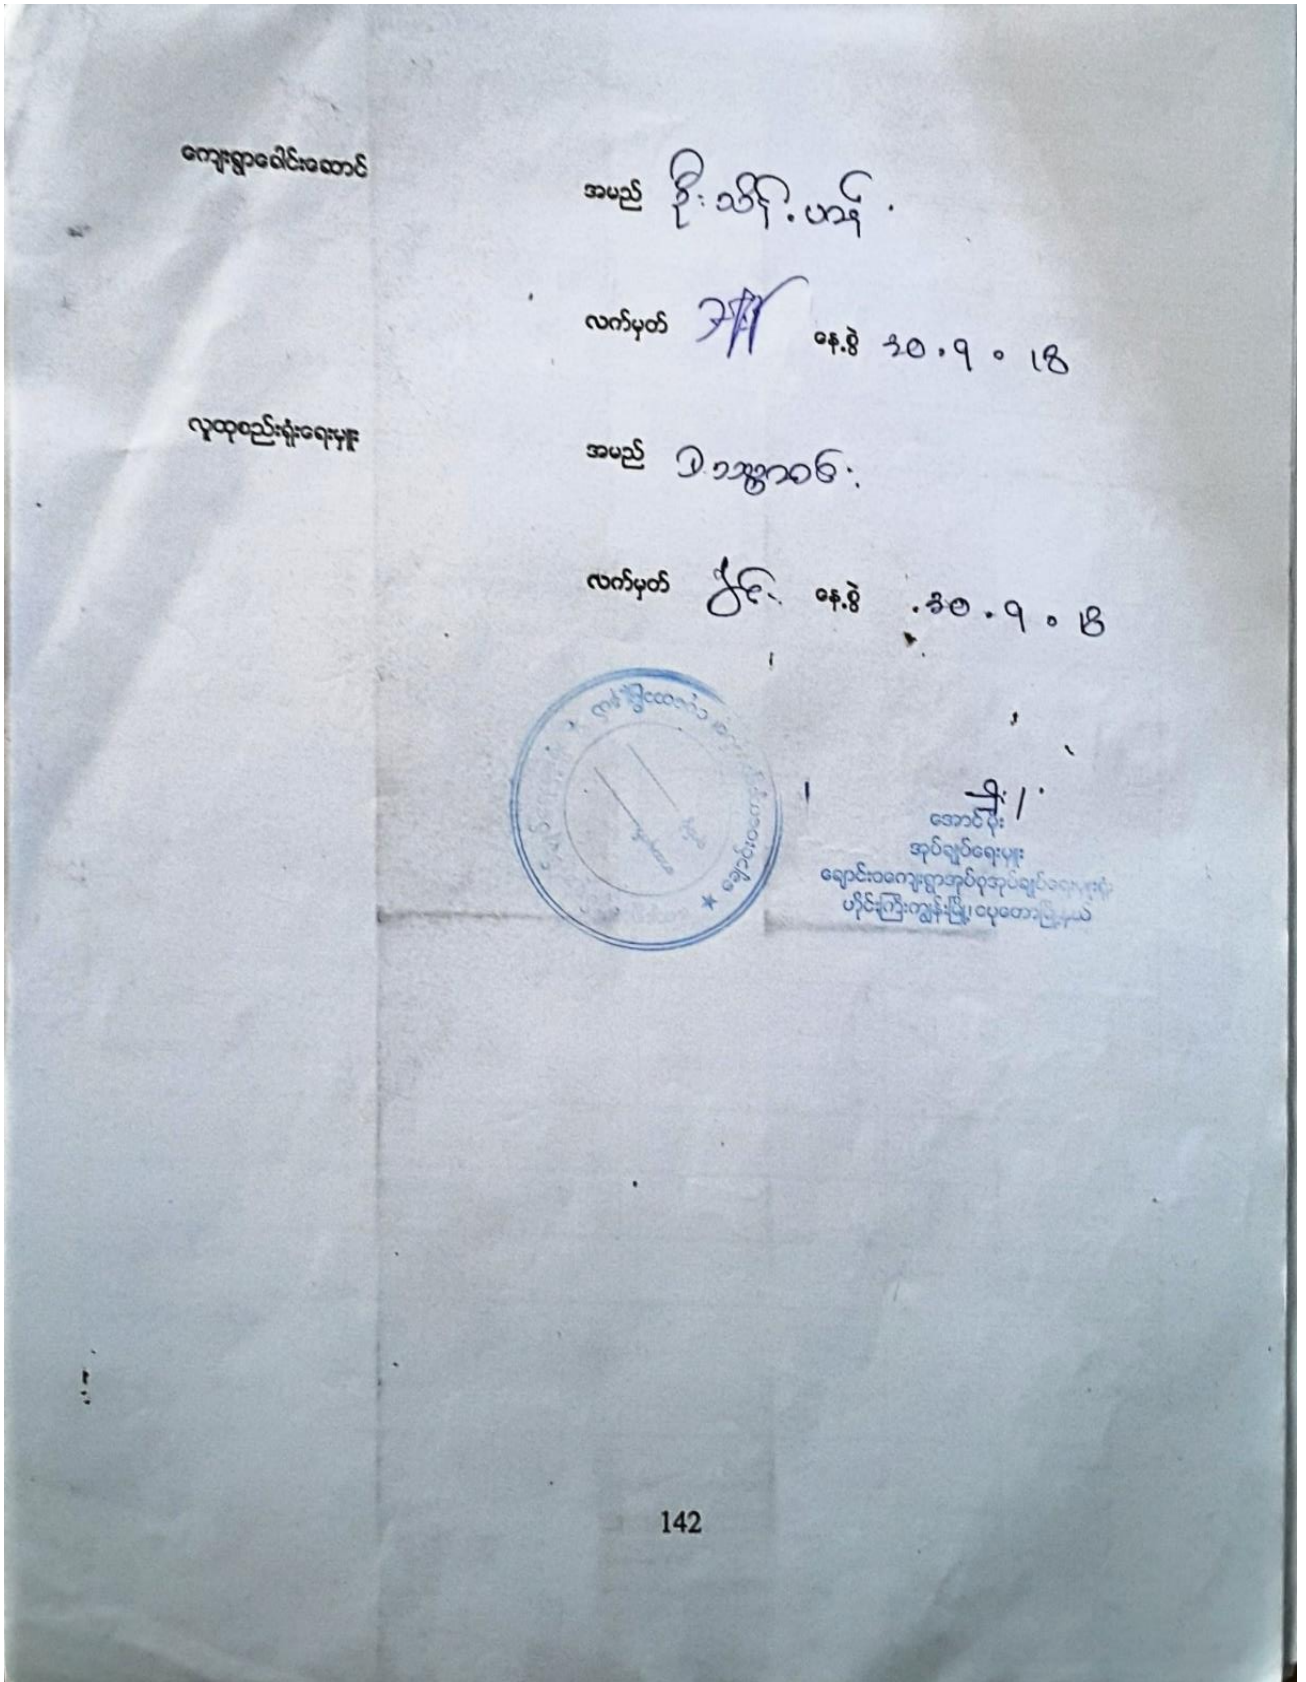 ကျေးရွာခေါင်းဆောင်
အမည် ဦးသိန်းဟန်
လက်မှတ် နေ့စွဲ ၃၀.၇.၁၈
လူထုစည်းရုံးရေးမှူး
အမည်
လက်မှတ် နေ့စွဲ ၃၀.၇.၁၈
အောင်မိုး
အုပ်ချုပ်ရေးမှူး
ချောင်းဝကျေးရွာအုပ်စုအုပ်ချုပ်ရေးမှူးရုံး
ဟိုင်းကြီးကျွန်းမြို့၊ ငပုတောမြို့နယ်
142